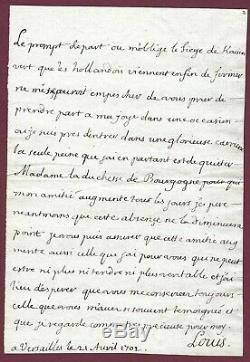 Le prompt depart ou m'oblige le siege de Kaiser
vert que les hollandois viennent enfin de former
ne m'empescher de vous prier de
prendre part a ma joye dans une occasion
ou je puis pres dentrer dans une glorieuse carriere
la seule peine que j'ai en partant est de quitter
Madame la duchesse de Bourgogne pour qui
mon amitié augmente tout les jours j'es pere
neantmoins que cette absence ne la diminuera
point je vous puis assurer que cette amitie aug
mente aussi celle que j'ai pour vous qui ne peut
estre ni plus ni tendre ni plus veritable et j'ai
lieu desperer que vous me conserverez toujours
celle que vous m'avez toujours temoignée et
que je regarde comme tres precieuse pour moy
a Versailles le 21 Avril 1702. Louis.
ebay